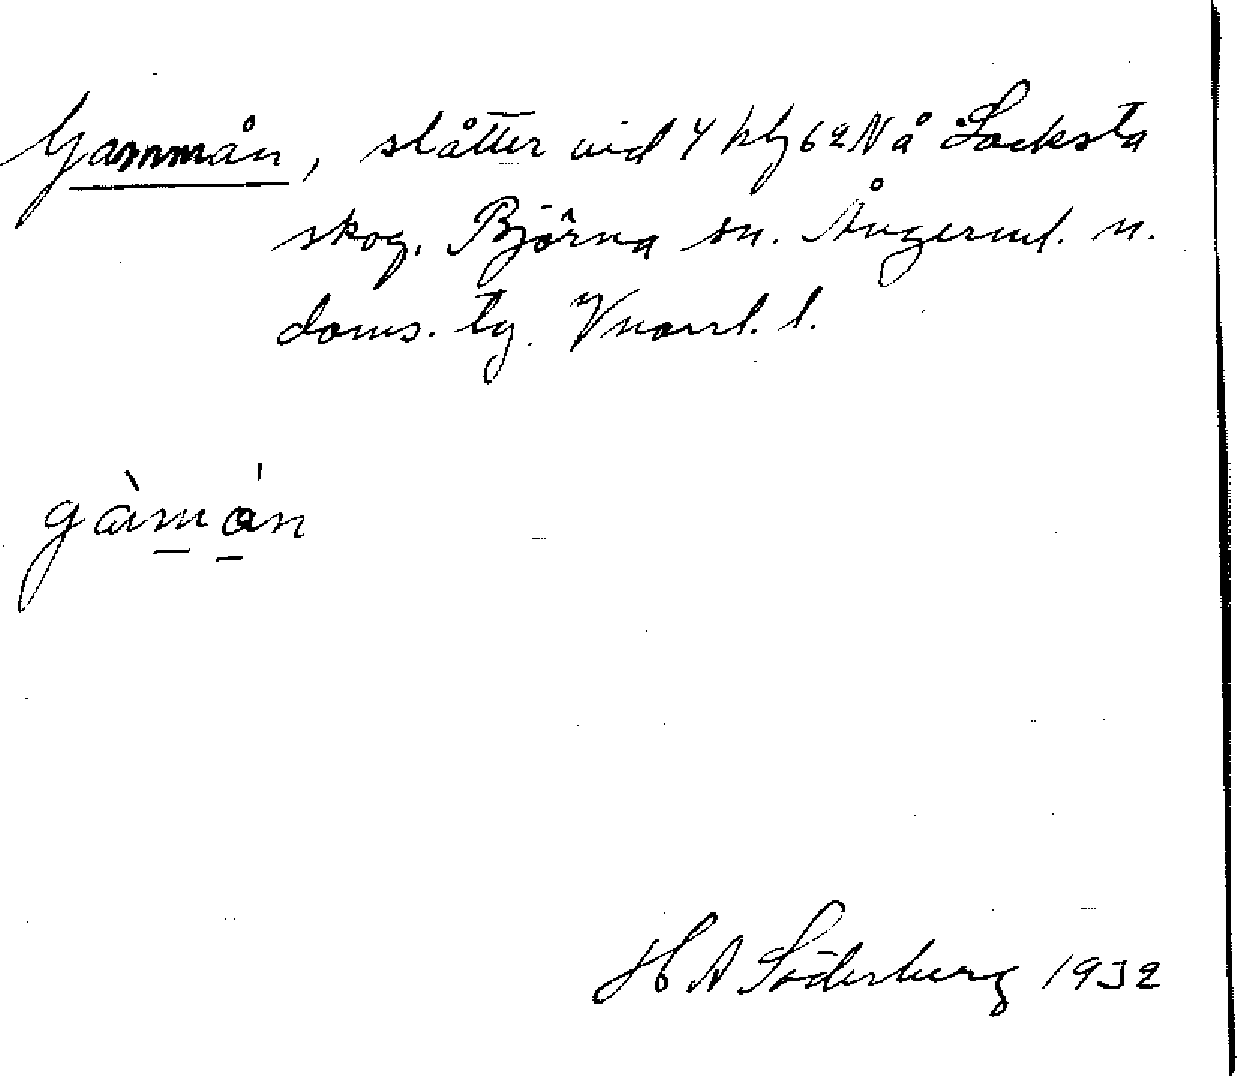 Gammån, slåtter vid 4 hlg 62 N å Locksta
skog. Björna sn. Ångerml. n.
doms. tg. Vnorrl. l.
gàmán
H A Söderberg 1932